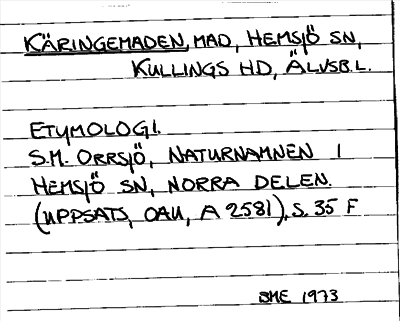 KÄRINGEMADEN, MAD, HEMSJÖ SN,
KULLINGS HD, ÄLVSB.L.
ETYMOLOGI.
S.M. ORRSJÖ, NATURNAMNEN I
HEMSJÖ SN, NORRA DELEN.
(UPPSATS, OAU, A 2581), S. 35 F
SME 1973